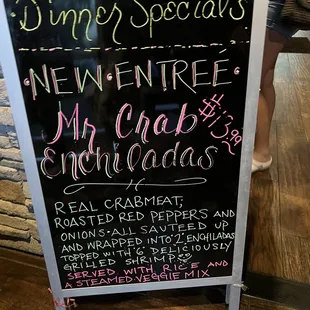 Dinner Specials
·NEW·ENTREE·
Mr Crab
$13.99
Enchiladas
REAL CRABMEAT,
ROASTED RED PEPPERS AND
ONIONS·ALL SAUTEED UP
AND WRAPPED INTO "2" ENCHILADAS
TOPPED WITH "6" DELICIOUSLY
GRILLED SHRIMP
SERVED WITH RICE AND
A STEAMED VEGGIE MIX